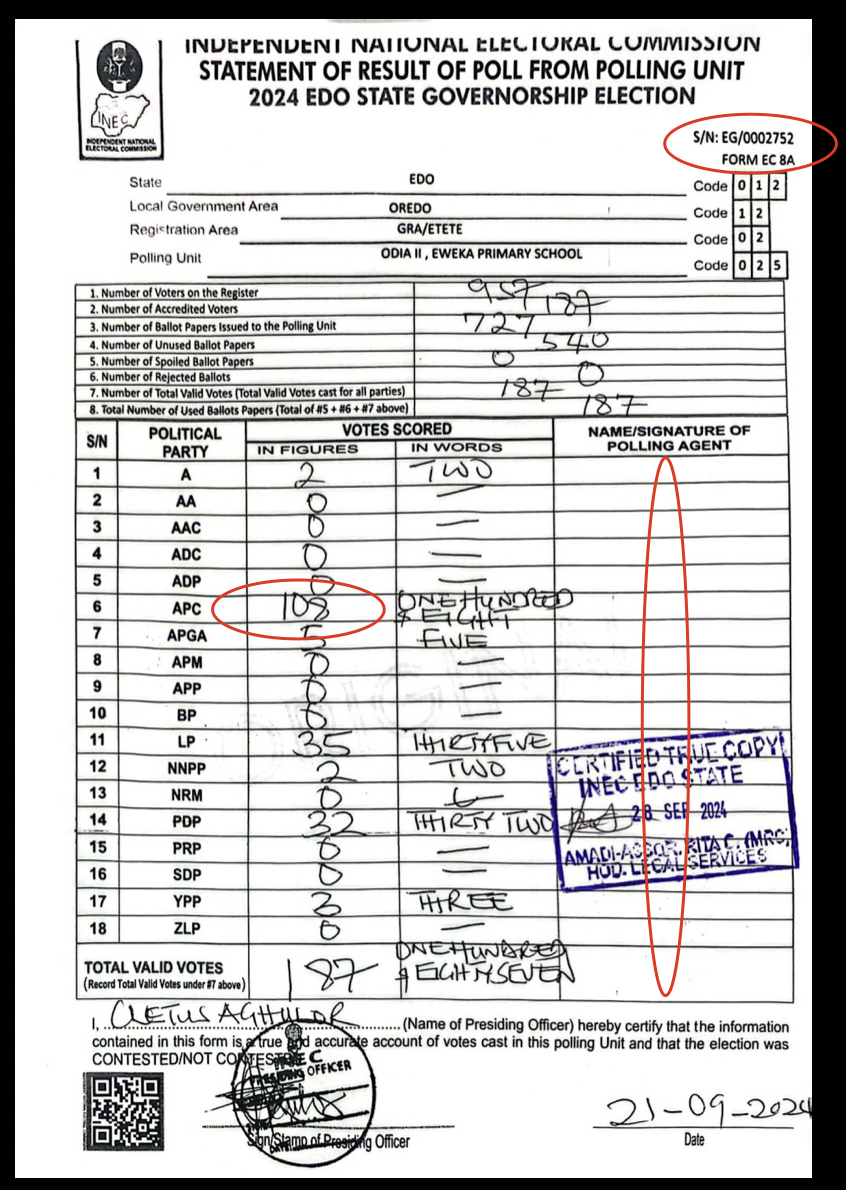 INDEPENDENT NATIONAL ELECTORAL COMMISSION
STATEMENT OF RESULT OF POLL FROM POLLING UNIT
2024 EDO STATE GOVERNORSHIP ELECTION
INEC
INDEPENDENT NATIONAL
ELECTORAL COMMISSION
S/N: EG/0002752
FORM EC 8A
State EDO Code 0 1 2
Local Government Area OREDO Code 1 2
Registration Area GRA/ETETE Code 0 2
Polling Unit ODIA II , EWEKA PRIMARY SCHOOL Code 0 2 5
1. Number of Voters on the Register 957
2. Number of Accredited Voters 187
3. Number of Ballot Papers Issued to the Polling Unit 727
4. Number of Unused Ballot Papers 540
5. Number of Spoiled Ballot Papers 0
6. Number of Rejected Ballots 0
7. Number of Total Valid Votes (Total Valid Votes cast for all parties) 187
8. Total Number of Used Ballots Papers (Total of #5 + #6 + #7 above) 187
S/N POLITICAL PARTY VOTES SCORED NAME/SIGNATURE OF POLLING AGENT
IN FIGURES IN WORDS
1 A 2 TWO
2 AA 0 —
3 AAC 0 —
4 ADC 0 —
5 ADP 0 —
6 APC 108 ONE HUNDRED & EIGHT
7 APGA 5 FIVE
8 APM 0 —
9 APP 0 —
10 BP 0 —
11 LP 35 THIRTYFIVE
12 NNPP 2 TWO
13 NRM 0
14 PDP 32 THIRTY TWO
15 PRP 0 —
16 SDP 0 —
17 YPP 3 THREE
18 ZLP 0 —
ORIGINAL
CERTIFIED TRUE COPY
INEC EDO STATE
28 SEP 2024
AMADI-ASSOR, RITA C. (MRS)
HOD. LEGAL SERVICES
TOTAL VALID VOTES 187 ONE HUNDRED & EIGHTYSEVEN
(Record Total Valid Votes under #7 above)
I, CLETUS (Name of Presiding Officer) hereby certify that the information
contained in this form is a true and accurate account of votes cast in this polling Unit and that the election was
CONTESTED/NOT CONTESTED
PRESIDING OFFICER
21-09-2024
Sign/Stamp of Presiding Officer Date